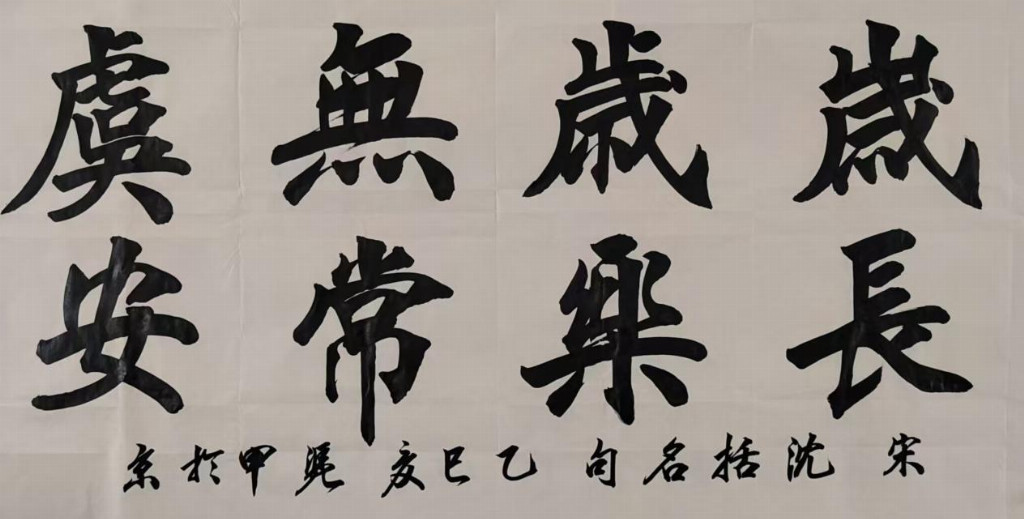 歲歲無虞
長樂常安
宋沈括名句乙巳夏甲於京